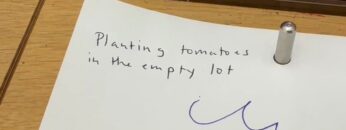 Planting tomatoes
in the empty lot